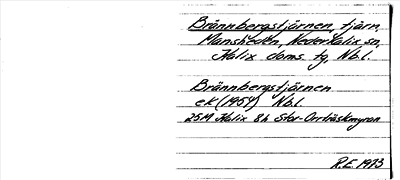 Brännbergstjärnen, tjärn,
Mansheden, Nederkalix sn,
Kalix doms. tg, Nb.l.
Brännbergstjärnen
ek (1959) Nb.l.
25M Kalix 8h Stor-Orrträskmyran
R.E. 1973